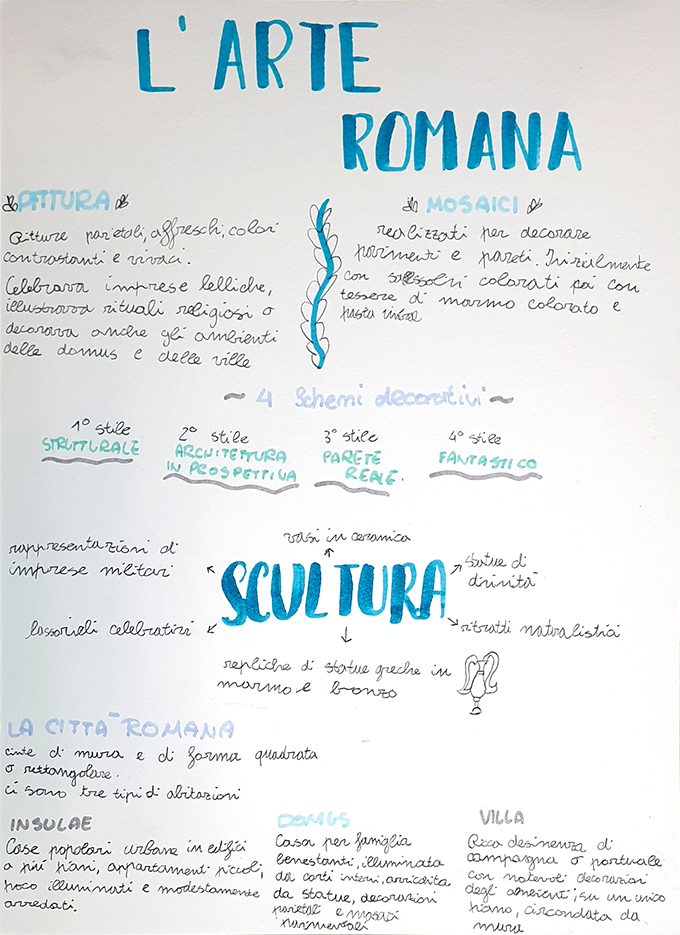 L'ARTE
ROMANA
PITTURA
Pitture parietali, affreschi, colori
contrastanti e vivaci.
Celebrava imprese belliche,
illustrava rituali religiosi o
decorava anche gli ambienti
delle domus e delle ville
MOSAICI
realizzati per decorare
pavimenti e pareti. Inizialmente
con colorati poi con
tessere di marmo colorato e
pasta
~ 4 Schemi decorativi ~
1° stile
STRUTTURALE
2° stile
ARCHITETTURA
IN PROSPETTIVA
3° stile
PARETE
REALE.
4° stile
FANTASTICO
SCULTURA
vasi in ceramica
rappresentazioni di
imprese militari
statue di
divinità
bassorilievi celebrativi
ritratti naturalistici
repliche di statue greche in
marmo e bronzo
LA CITTA' ROMANA
cinte di mura e di forma quadrata
o rettangolare.
ci sono tre tipi di abitazioni
INSULAE
Case popolari urbane in edifici
a più piani, appartamenti piccoli,
poco illuminati e modestamente
arredati.
DOMUS
Casa per famiglia
benestanti, illuminata
da corti interni, arricchita
da statue, decorazioni
parietali e mosaici
pavimentali
VILLA
Ricca di
campagna o portuale
con notevoli decorazioni
degli ambienti; su un unico
piano, circondata da
mura